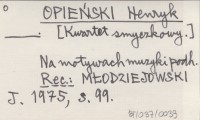 OPIEŃSKI Henryk
[Kwartet smyczkowy.]
Na motywach muzyki podh.
Rec.: MŁODZIEJOWSKI
J. 1975, s. 99.